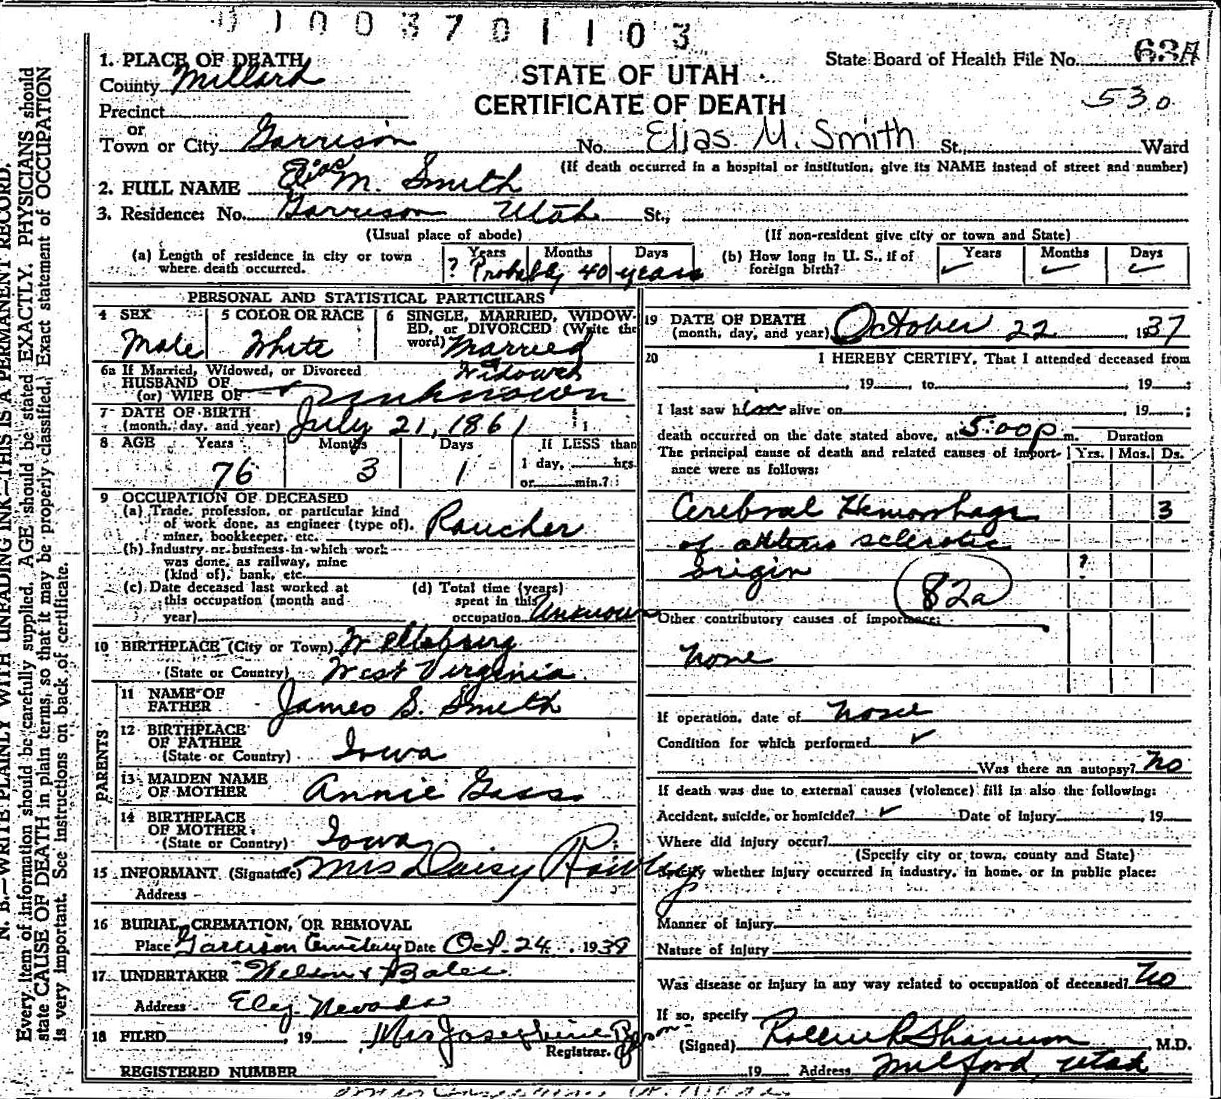 0 1 0 0 3 7 0 1 1 0 3
1. PLACE OF DEATH
County Millard
Precinct
or
Town or City Garrison
STATE OF UTAH
CERTIFICATE OF DEATH
State Board of Health File No. 63A
530
No. Elias M. Smith St. Ward
(If death occurred in a hospital or institution, give its NAME instead of street and number)
2. FULL NAME Elias M. Smith
3. Residence: No. Garrison Utah St.,
(Usual place of abode) (If non-resident give city or town and State)
(a) Length of residence in city or town where death occurred. Years Months Days
? Probably 40 years
(b) How long in U. S., if of foreign birth? Years Months Days
PERSONAL AND STATISTICAL PARTICULARS
4 SEX
Male
5 COLOR OR RACE
White
6 SINGLE, MARRIED, WIDOW-
ED, or DIVORCED (Write the
word) Married
Widowed
6a If Married, Widowed, or Divorced
HUSBAND OF
(or) WIFE OF Unknown
7 DATE OF BIRTH
(month, day, and year) July 21, 1861
8 AGE Years Months Days If LESS than
76 3 1 1 day, hrs.
or min.?
9 OCCUPATION OF DECEASED
(a) Trade, profession, or particular kind
of work done, as engineer (type of),
miner, bookkeeper, etc. Rancher
(b) Industry or business in which work
was done, as railway, mine
(kind of), bank, etc.
(c) Date deceased last worked at
this occupation (month and
year)
(d) Total time (years)
spent in this
occupation Unknown
10 BIRTHPLACE (City or Town) Wellsburg
(State or Country) West Virginia
PARENTS
11 NAME OF
FATHER James S. Smith
12 BIRTHPLACE
OF FATHER
(State or Country) Iowa
13 MAIDEN NAME
OF MOTHER Annie Gass
14 BIRTHPLACE
OF MOTHER
(State or Country) Iowa
15 INFORMANT (Signature) Mrs Daisy
Address
16 BURIAL, CREMATION, OR REMOVAL
Place Garrison Cemetery Date Oct. 24 1938
17 UNDERTAKER Wilson & Bates
Address Ely Nevada
18 FILED , 19 Mrs Josephine
Registrar.
REGISTERED NUMBER
19 DATE OF DEATH
(month, day, and year) October 22 1937
20 I HEREBY CERTIFY, That I attended deceased from
, 19 to , 19 ;
I last saw him alive on , 19 ;
death occurred on the date stated above, at 5:00 p m.
The principal cause of death and related causes of import-
ance were as follows:
Duration
Yrs. Mos. Ds.
Cerebral Hemorrhage 3
of sclerotic
origin ?
82a
Other contributory causes of importance:
None
If operation, date of None
Condition for which performed ✓
Was there an autopsy? No
If death was due to external causes (violence) fill in also the following:
Accident, suicide, or homicide? ✓ Date of injury , 19
Where did injury occur?
(Specify city or town, county and State)
Specify whether injury occurred in industry, in home, or in public place:
Manner of injury
Nature of injury
Was disease or injury in any way related to occupation of deceased? No
If so, specify
(Signed) Rollin R Shannon , M.D.
19 Address Milford, Utah
N. B.—WRITE PLAINLY WITH UNFADING INK—THIS IS A PERMANENT RECORD.
Every item of information should be carefully supplied. AGE should be stated EXACTLY. PHYSICIANS should
state CAUSE OF DEATH in plain terms, so that it may be properly classified. Exact statement of OCCUPATION
is very important. See instructions on back of certificate.